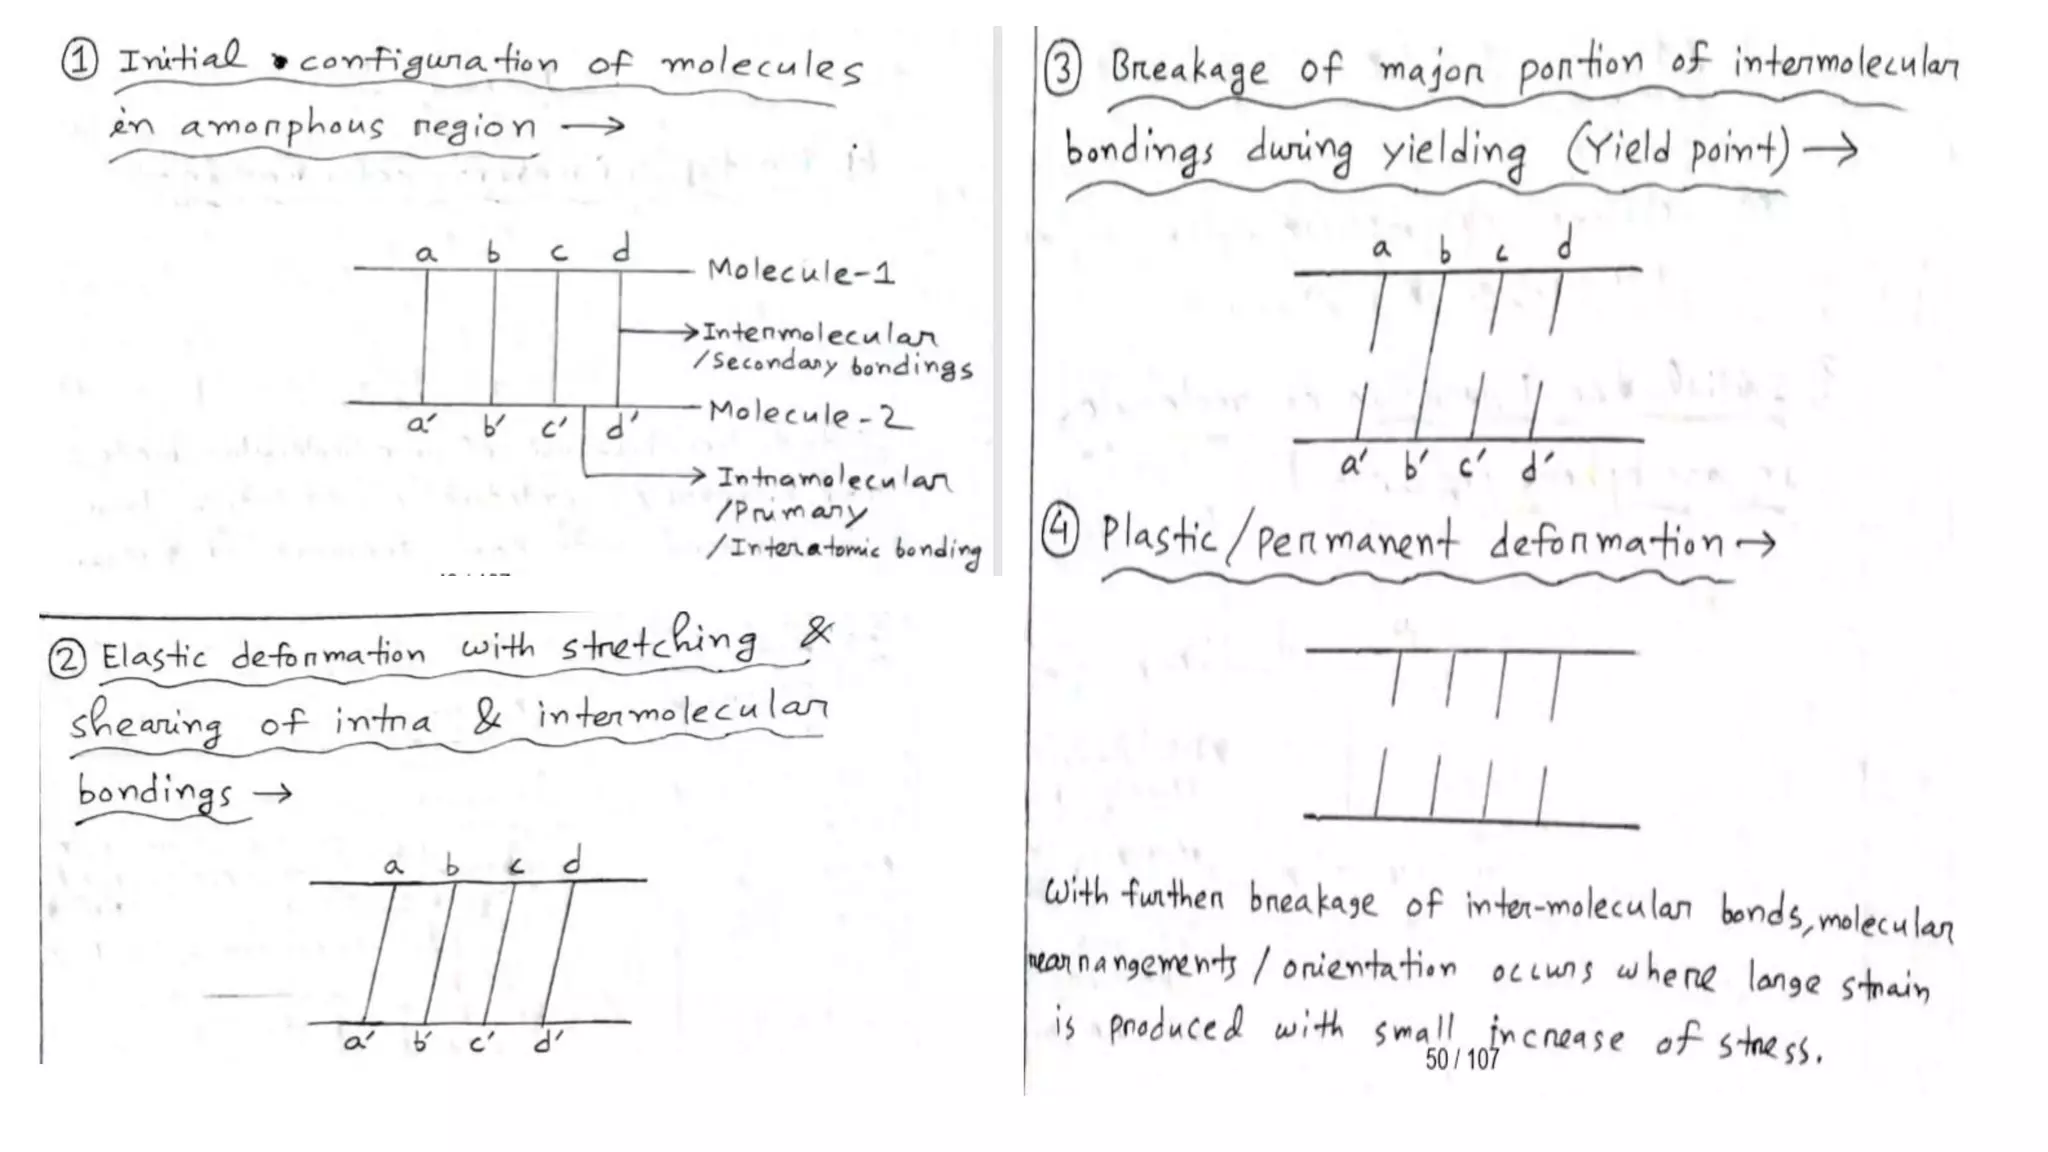 ① Initial configuration of molecules
in amorphous region →
a b c d
Molecule-1
→ Intermolecular
/Secondary bondings
Molecule-2
a' b' c' d'
→ Intramolecular
/Primary
/Interatomic bonding
② Elastic deformation with stretching &
shearing of intra & intermolecular
bondings →
a b c d
a' b' c' d'
③ Breakage of major portion of intermolecular
bondings during yielding (Yield point) →
a b c d
a' b' c' d'
④ Plastic/permanent deformation →
With further breakage of inter-molecular bonds, molecular
rearrangements / orientation occurs where large strain
is produced with small increase of stress.
50 / 107